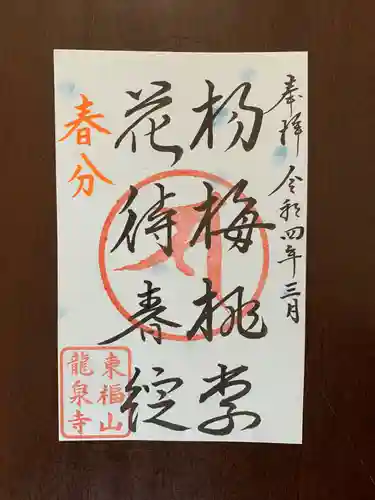 奉拝 令和四年三月
杨梅桃李
花待春綻
春分
東福山
龍泉寺